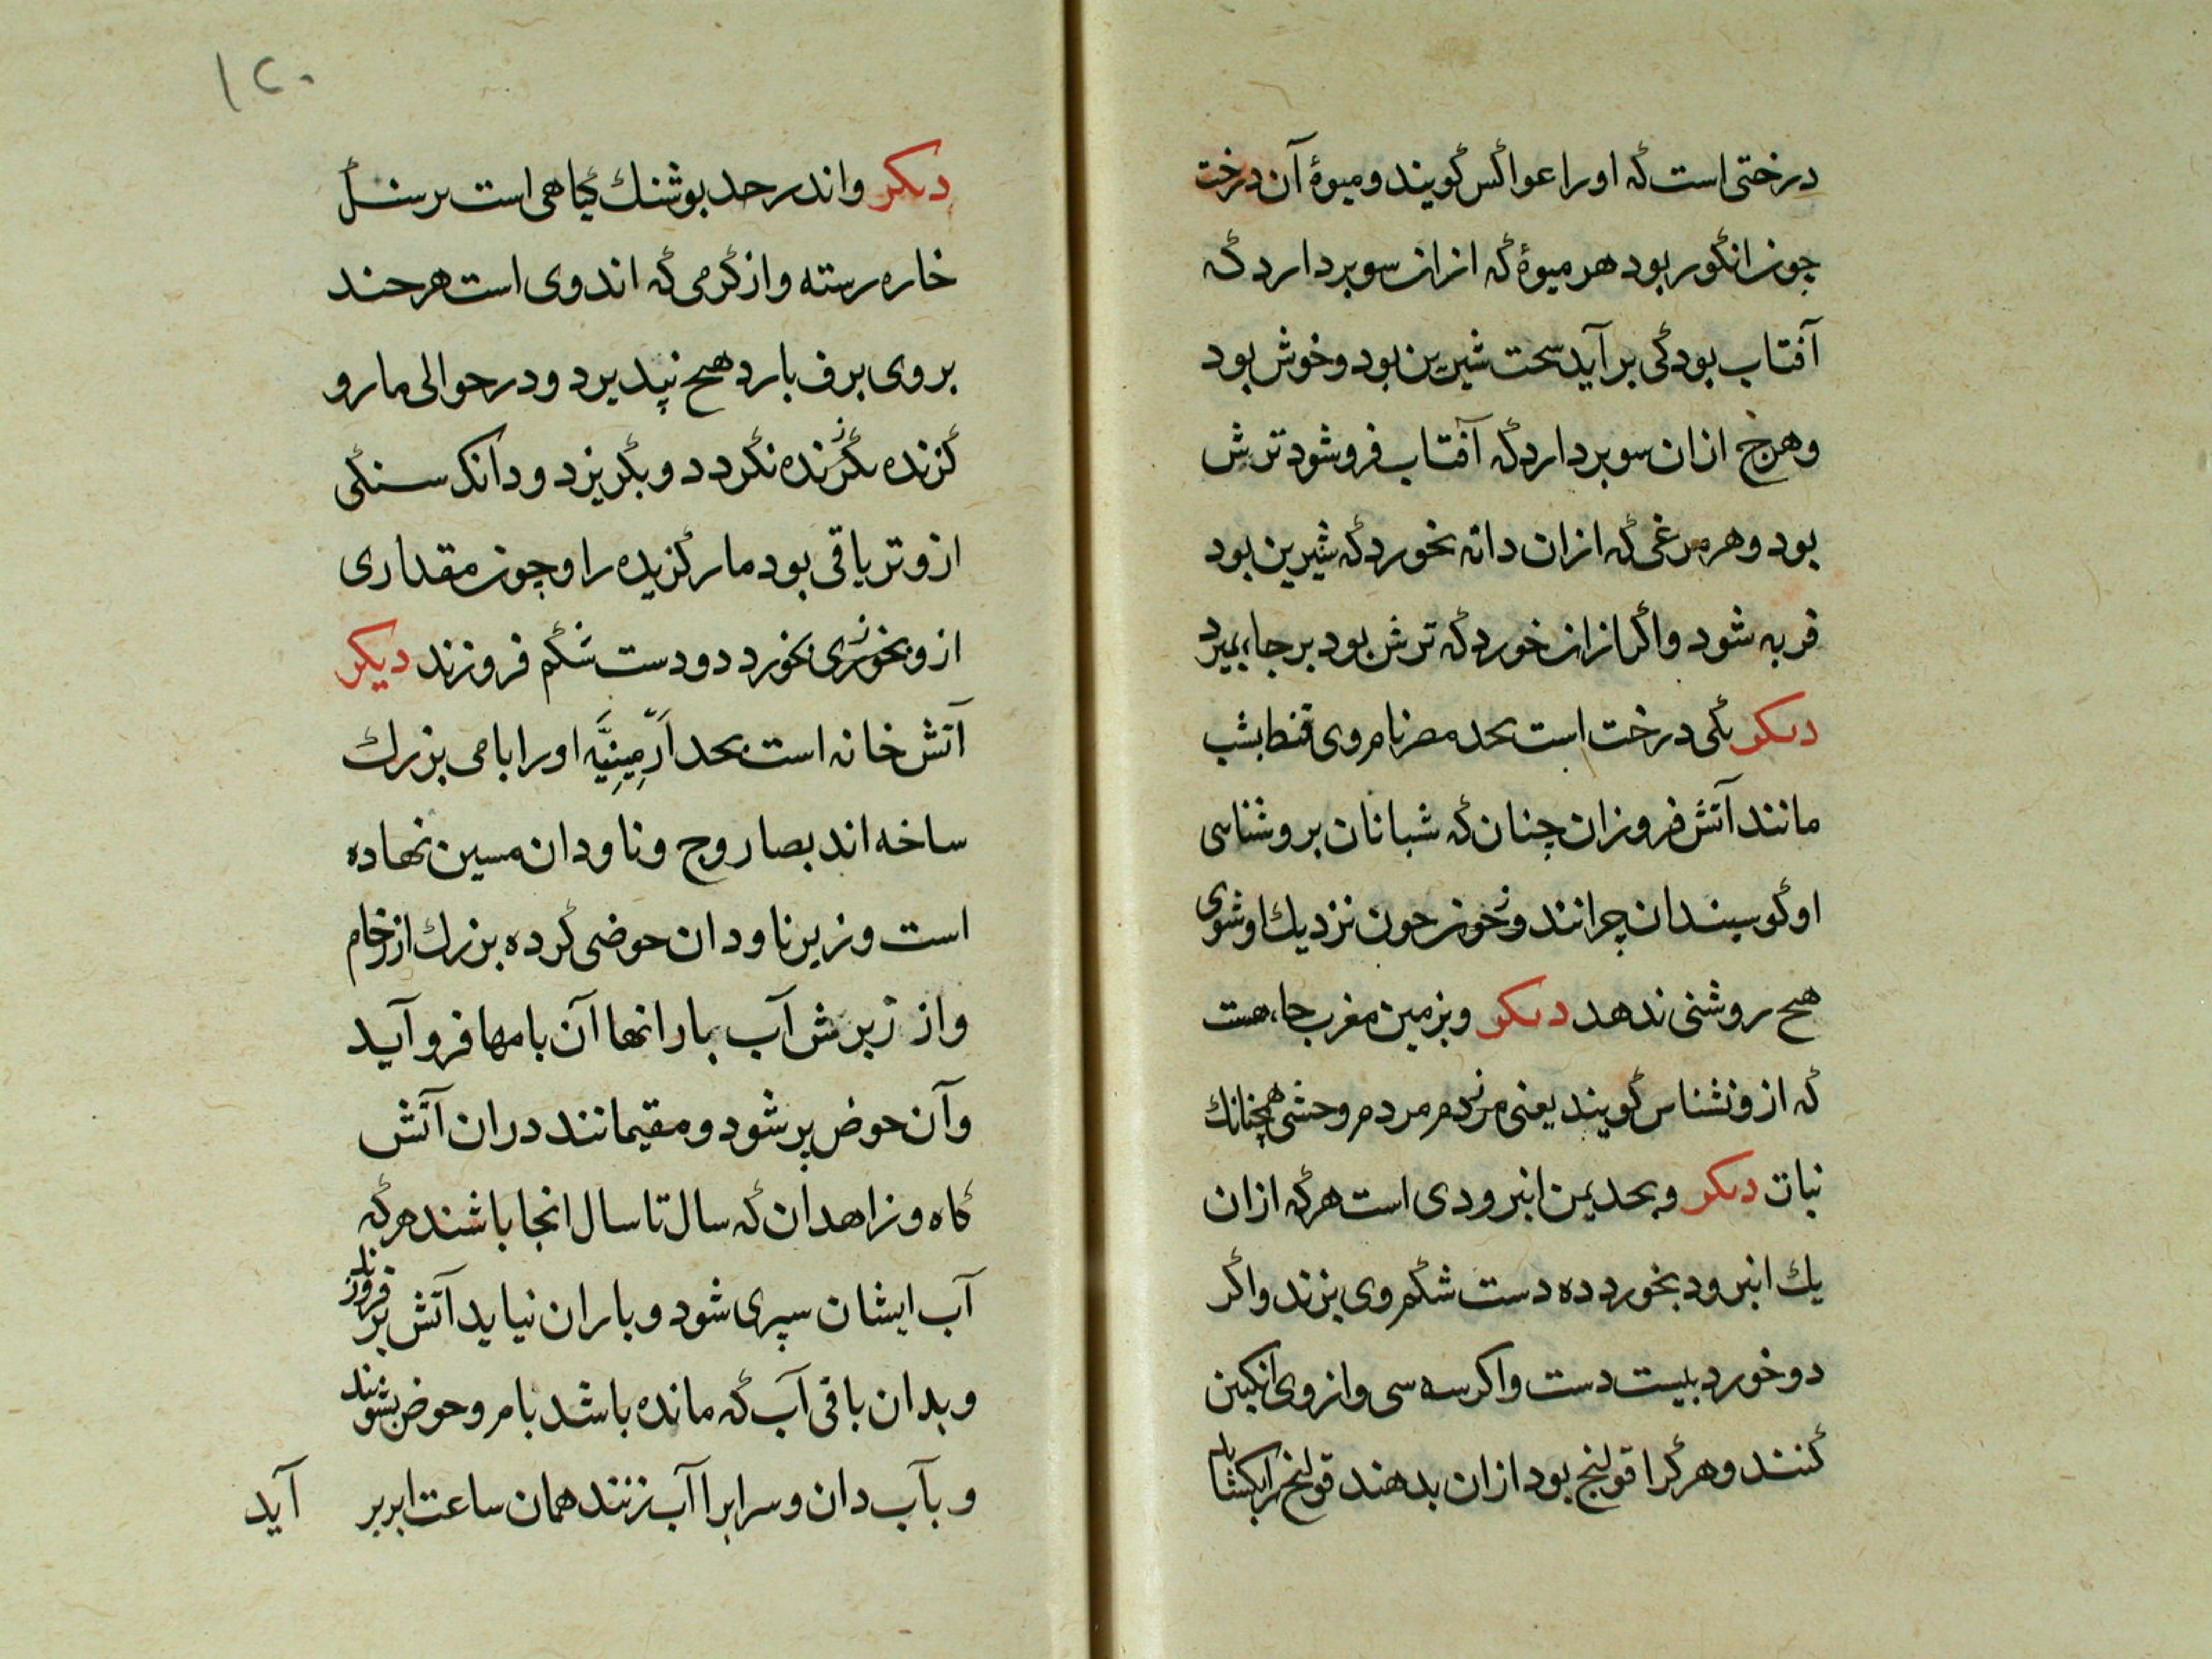 درختی است که او را عواکس گویند و میوهٔ آن درخت
چون انگور بود هر میوهٔ که ازان سو بردارد که
آفتاب بود کی برآید سخت شیرین بود و خوش بود
وهرج ازان سو بردارد که آفتاب فروشود ترش
بود و هر مرغی که ازان دانه بخورد که شیرین بود
فربه شود واگر ازان خورد که ترش بود بر جاء بمیرد
دیکر یکی درخت است بحد مصر نام وی قنطا بشب
مانند آتش فروزان چنان که شبانان بروشنایی
او گوسبندان چرانند و خون چون نزدیك او شوی
هیح روشنی ندهد دیکر و بزمین مغرب جاء هست
که ازو نشناس گویند یعنی مردم مردم وحشی همچنانك
نبات دیکر و بحد یمن انبرودی است هرکه ازان
یك انبرود بخورد ده دست شکم وی براند واگر
دو خورد بیست دست واکر سه سی وازوی انکبین
کنند و هرکرا قولنج بود ازان بدهند قولنج را بکشاید
۱۲۰
دیکر و اندر حد بوشنك گیاهی است بر سنگ
خاره رسته و از گرمی که اندوی است هرجند
بروی برف بارد هیح نپدیرد و در حوالی مار و
گزنده نگردد و بگریزد و دانک سنگی
ازو تریاقی بود مار گزیده را و چون مقداری
ازو بخوری بخورد دو دست شکم فروزند دیکر
آتش خانه است بحد اَرّمِینِیَّه او را بامی بزرك
ساخه اند بصاروج و ناودان مسین نهاده
است و زیر ناودان حوضی کرده بزرك از رخام
واز زبرش آب بارانها آن بامها فرو آید
وآن حوض پر شود و مقیمانند دران آتش
گاه و زاهدان که سال تا سال انجا باشند هرگه
آب ایشان سپری شود و باران نیاید آتش بر فروزند
و بدان باقی آب که مانده باشد بام و حوض بشویند
و بآب دان و سرابرا آب زنند همان ساعت ابر بر
آید